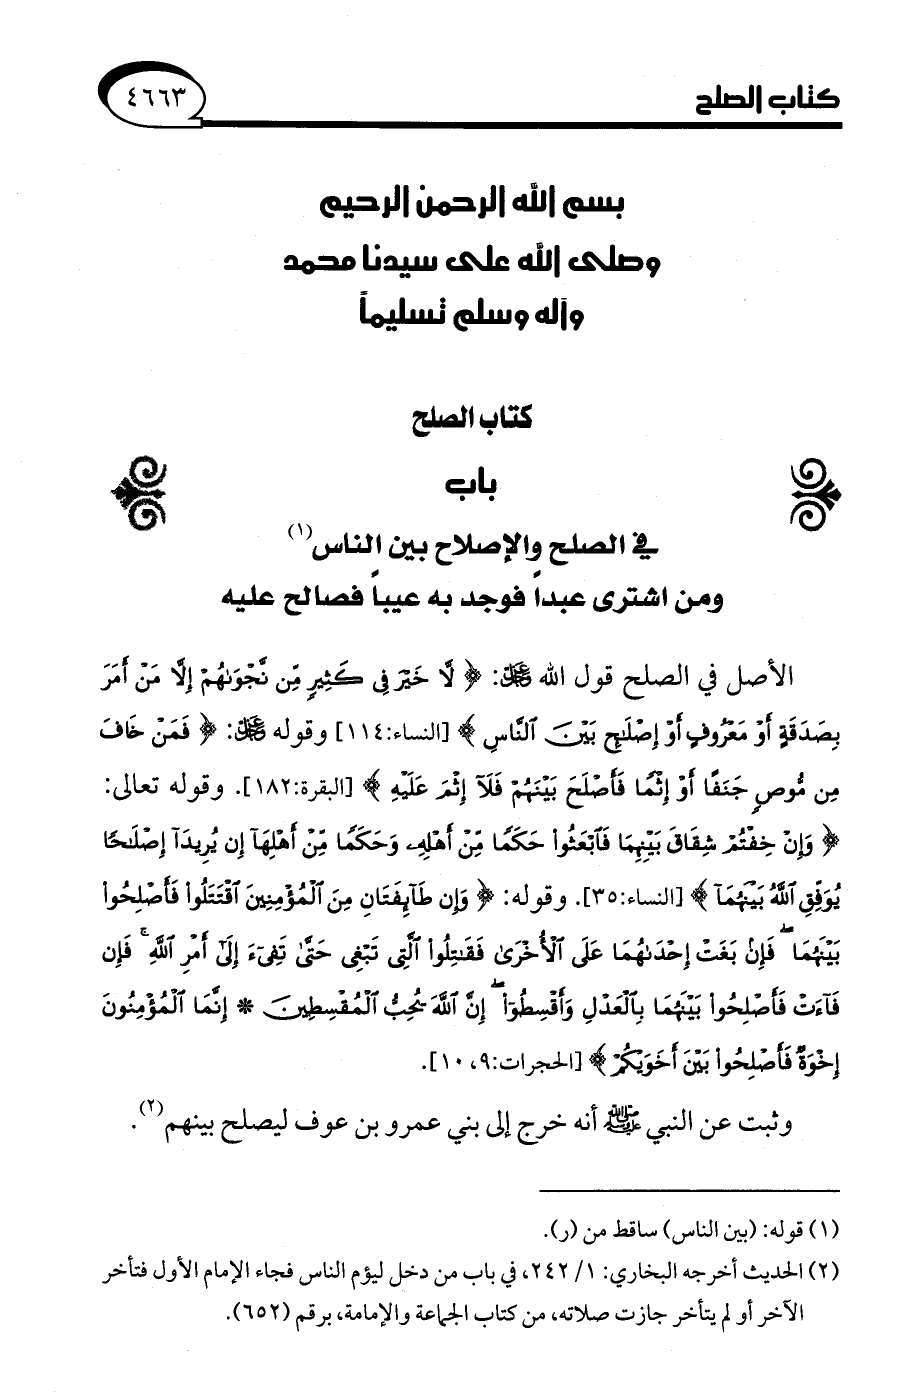 كتاب الصلح
٤٦٦٣
بسم الله الرحمن الرحيم
وصلى الله على سيدنا محمد
وآله وسلم تسليماً
كتاب الصلح
باب
في الصلح والإصلاح بين الناس(١)
ومن اشترى عبداً فوجد به عيباً فصالح عليه
الأصل في الصلح قول الله ﷻ: ﴿ لَّا خَيْرَ فِى كَثِيرٍ مِّن نَّجْوَىٰهُمْ إِلَّا مَنْ أَمَرَ
بِصَدَقَةٍ أَوْ مَعْرُوفٍ أَوْ إِصْلَٰحٍۭ بَيْنَ ٱلنَّاسِ ﴾ [النساء:١١٤] وقوله ﷻ: ﴿ فَمَنْ خَافَ
مِن مُّوصٍ جَنَفًا أَوْ إِثْمًا فَأَصْلَحَ بَيْنَهُمْ فَلَآ إِثْمَ عَلَيْهِ ﴾ [البقرة:١٨٢]. وقوله تعالى:
﴿ وَإِنْ خِفْتُمْ شِقَاقَ بَيْنِهِمَا فَٱبْعَثُوا۟ حَكَمًا مِّنْ أَهْلِهِۦ وَحَكَمًا مِّنْ أَهْلِهَآ إِن يُرِيدَآ إِصْلَٰحًا
يُوَفِّقِ ٱللَّهُ بَيْنَهُمَآ ﴾ [النساء:٣٥]. وقوله: ﴿ وَإِن طَآئِفَتَانِ مِنَ ٱلْمُؤْمِنِينَ ٱقْتَتَلُوا۟ فَأَصْلِحُوا۟
بَيْنَهُمَا ۖ فَإِنۢ بَغَتْ إِحْدَىٰهُمَا عَلَى ٱلْأُخْرَىٰ فَقَٰتِلُوا۟ ٱلَّتِى تَبْغِى حَتَّىٰ تَفِىٓءَ إِلَىٰٓ أَمْرِ ٱللَّهِ ۚ فَإِن
فَآءَتْ فَأَصْلِحُوا۟ بَيْنَهُمَا بِٱلْعَدْلِ وَأَقْسِطُوٓا۟ ۖ إِنَّ ٱللَّهَ يُحِبُّ ٱلْمُقْسِطِينَ * إِنَّمَا ٱلْمُؤْمِنُونَ
إِخْوَةٌ فَأَصْلِحُوا۟ بَيْنَ أَخَوَيْكُمْ ﴾ [الحجرات:٩، ١٠].
وثبت عن النبي ﷺ أنه خرج إلى بني عمرو بن عوف ليصلح بينهم(٢).
(١) قوله: (بين الناس) ساقط من (ر).
(٢) الحديث أخرجه البخاري: ١/ ٢٤٢، في باب من دخل ليؤم الناس فجاء الإمام الأول فتأخر
الآخر أو لم يتأخر جازت صلاته، من كتاب الجماعة والإمامة، برقم (٦٥٢).